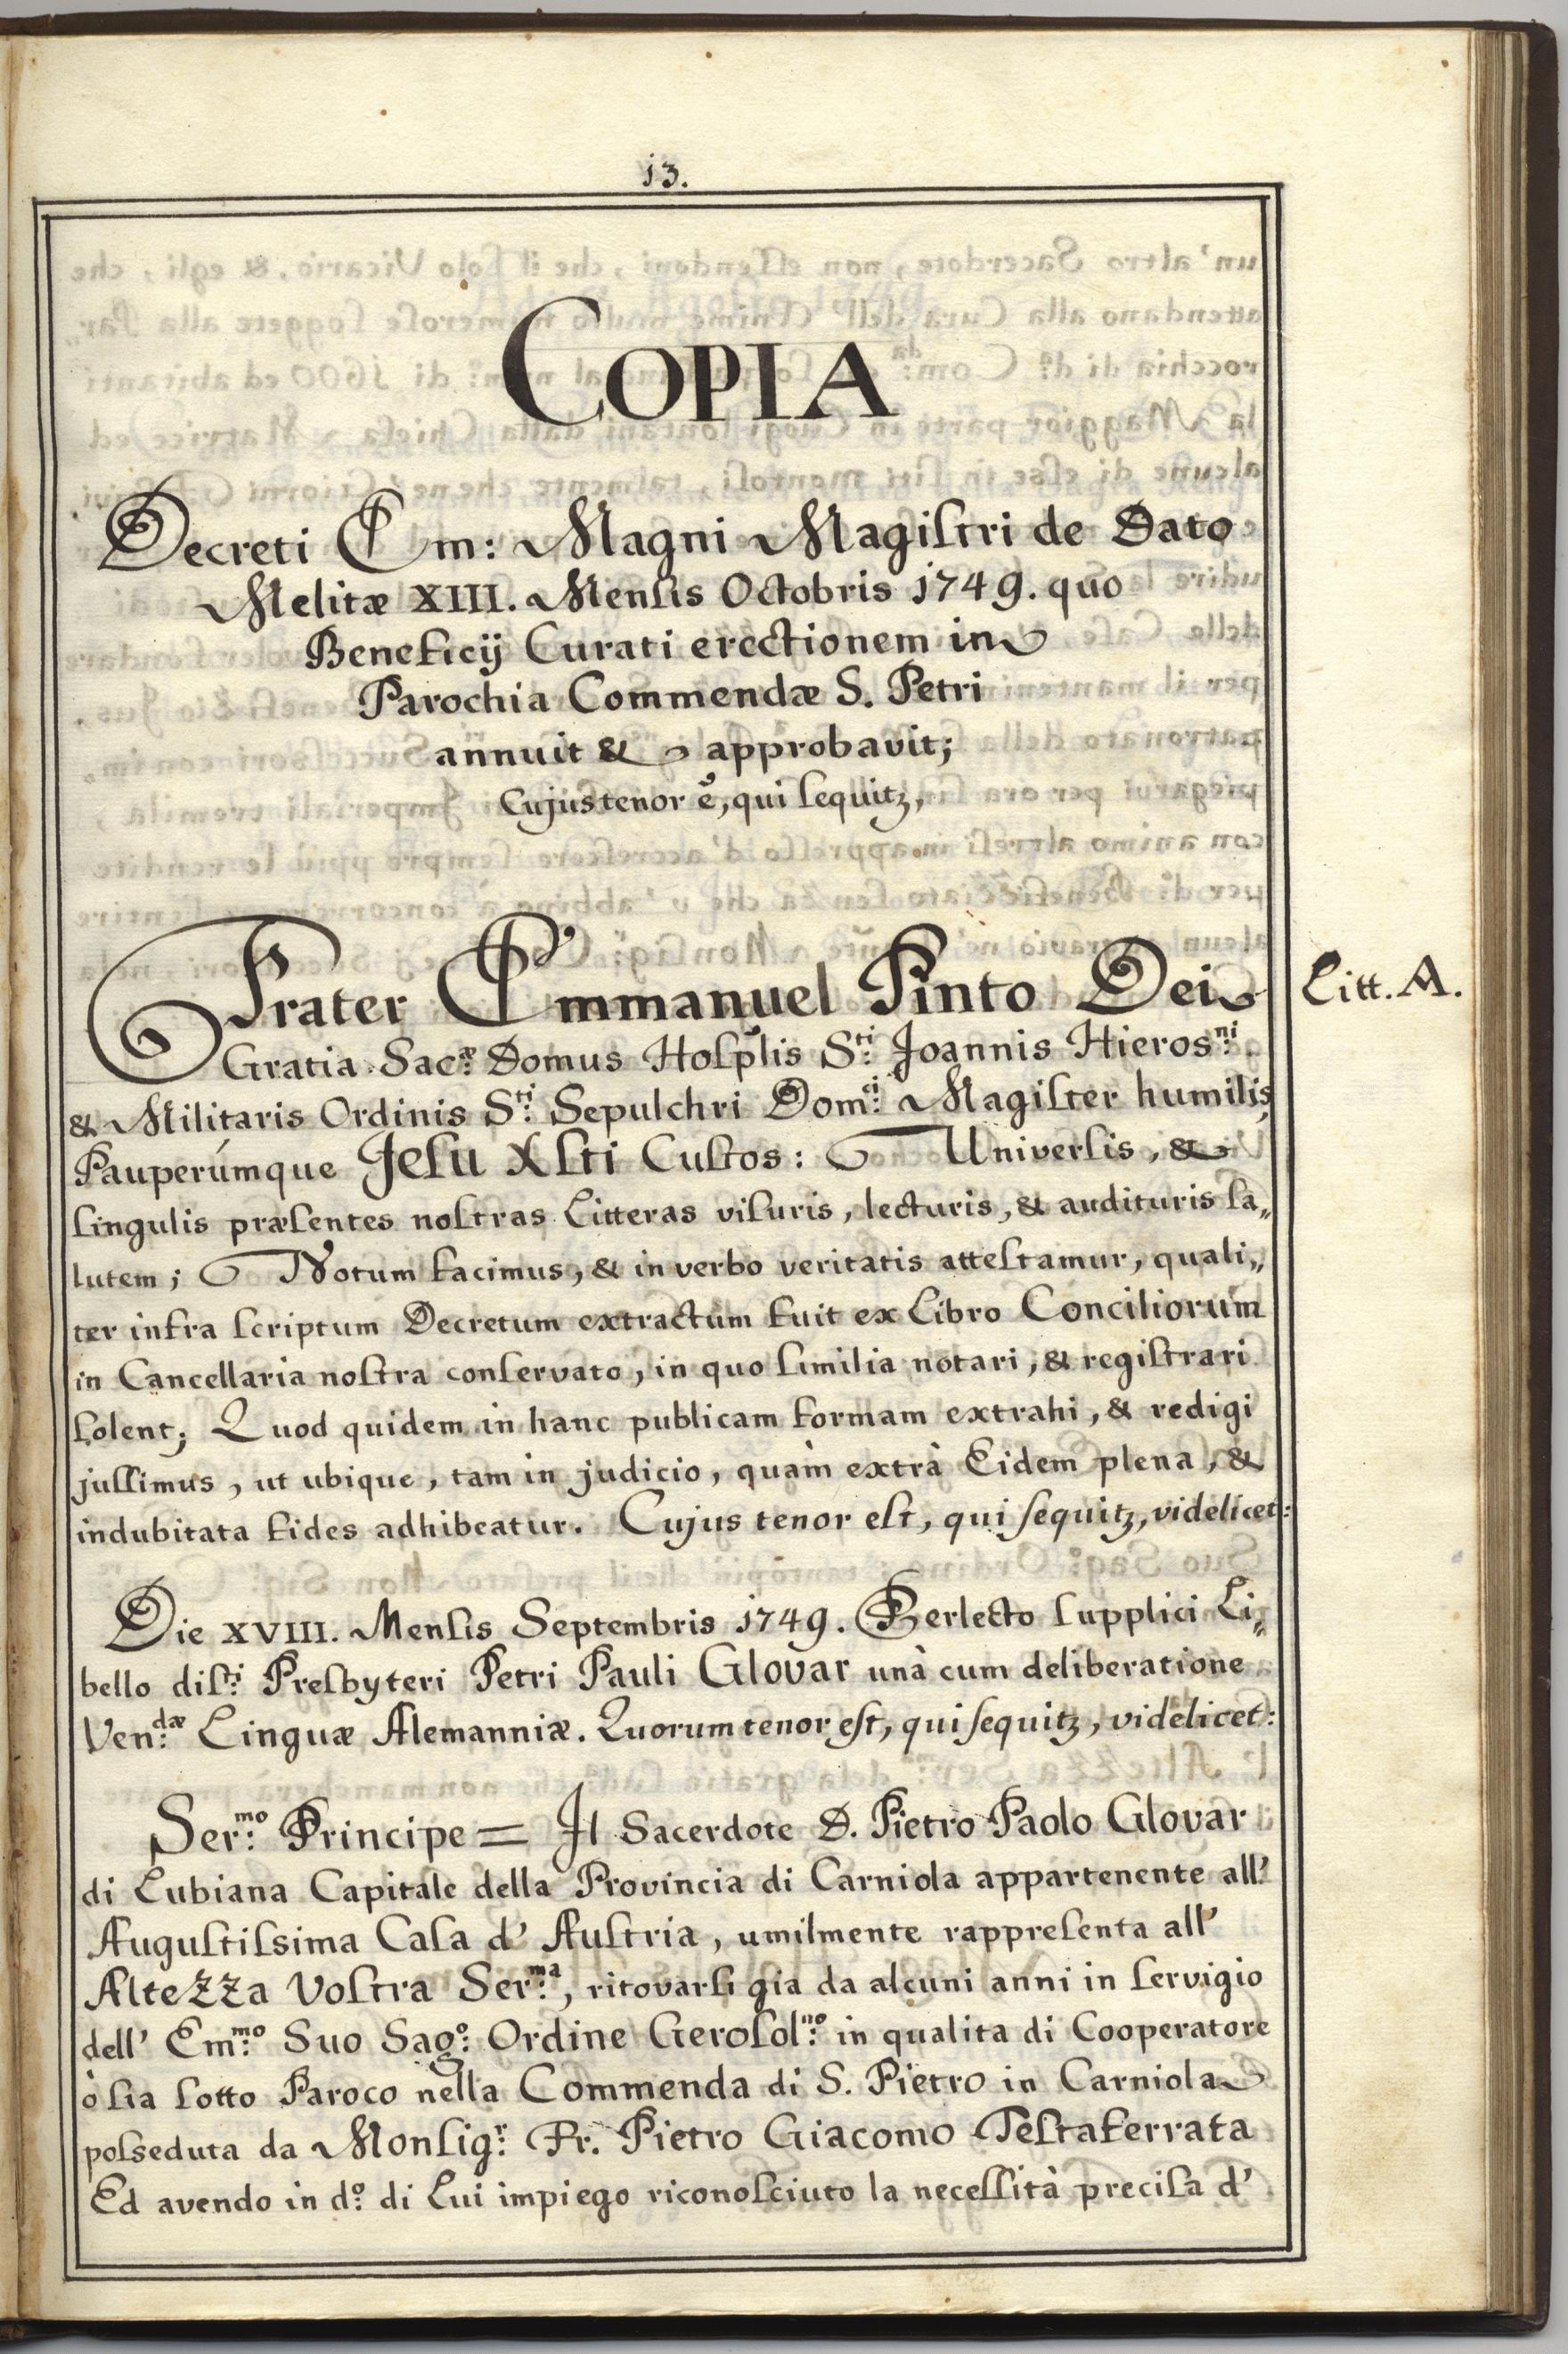 13.
COPIA
Decreti Em: Magni Magiſtri de Dato
Melitæ XIII. Menſis Octobris 1749. quo
Beneficij Curati erectionem in
Parochia Commendæ S. Petri
annuit & approbavit;
Cujus tenor ẽ, qui ſequitꝫ,
Frater Emmanuel Pinto Dei
Litt. A.
Gratia Sac:ᵃᵉ Domus Hoſplis S:ᵗⁱ Joannis Hieros:ⁿⁱ.
& Militaris Ordinis S:ᵗⁱ Sepulchri Dom:ᶜⁱ Magiſter humilis,
Pauperúmque Jeſu Xſti Cuſtos: Univerſis, &
ſingulis præſentes noſtras Litteras viſuris, lecturis, & audituris ſa„
lutem; Notum facimus, & in verbo veritatis atteſtamur, quali„
ter infra ſcriptum Decretum extractum fuit ex Libro Conciliorum
in Cancellaria noſtra conſervato, in quo ſimilia notari, & regiſtrari
ſolent; Quod quidem in hanc publicam formam extrahi, & redigi
juſſimus, ut ubique, tam in judicio, quàm extrà Eidem plena, &
indubitata fides adhibeatur. Cujus tenor eſt, qui ſequitꝫ, videlicet:
Die XVIII. Menſis Septembris 1749. Perlecto ſupplici Li„
bello diſ:ᵗⁱ Preſbyteri Petri Pauli Glovar unà cum deliberatione
Ven:ᵈᵃᵉ Linguæ Alemanniæ. Quorum tenor eſt, qui ſequitꝫ, videlicet:
Ser:ᵐᵒ Principe = Il Sacerdote D. Pietro Paolo Glovar
di Lubiana Capitale della Provincia di Carniola appartenente all'
Auguſtiſsima Caſa d' Auſtria, umilmente rappreſenta all'
Altezza Voſtra Ser:ᵐᵃ, ritovarſi gia da alcuni anni in ſervigio
dell' Em:ᵐᵒ Suo Sag:º Ordine Geroſol:ⁿᵒ in qualita di Cooperatore
ò ſia ſotto Paroco nella Commenda di S. Pietro in Carniola
poſseduta da Monſig:ʳ Fr. Pietro Giacomo Teſtaferrata
Ed avendo in d:º di Lui impiego riconoſciuto la neceſſità preciſa d'